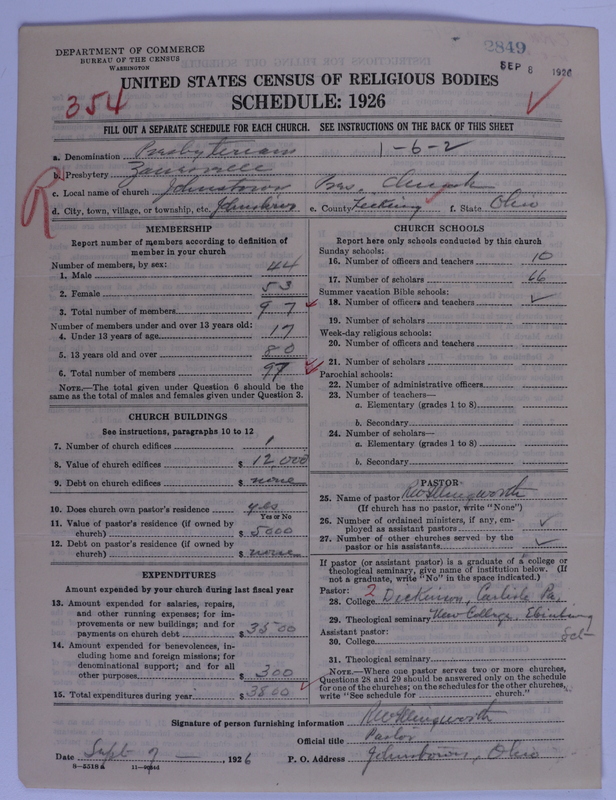 DEPARTMENT OF COMMERCE
BUREAU OF THE CENSUS
WASHINGTON
2849
SEP 8 1926
UNITED STATES CENSUS OF RELIGIOUS BODIES
SCHEDULE: 1926
354
FILL OUT A SEPARATE SCHEDULE FOR EACH CHURCH. SEE INSTRUCTIONS ON THE BACK OF THIS SHEET
a. Denomination Presbyterian 1-6-2
b. Presbytery Zanesville
c. Local name of church Johnstown Pres. Church
d. City, town, village, or township, etc. Johnstown e. County Licking f. State Ohio
R
MEMBERSHIP
Report number of members according to definition of member in your church
Number of members, by sex:
1. Male 44
2. Female 53
3. Total number of members 97
Number of members under and over 13 years old:
4. Under 13 years of age 17
5. 13 years old and over 80
6. Total number of members 97
NOTE.—The total given under Question 6 should be the
same as the total of males and females given under Question 3.
CHURCH BUILDINGS
See instructions, paragraphs 10 to 12
7. Number of church edifices 1
8. Value of church edifices $ 12,000
9. Debt on church edifices $ none
10. Does church own pastor's residence yes
Yes or No
11. Value of pastor's residence (if owned by
church) $ 5000
12. Debt on pastor's residence (if owned by
church) $ none
EXPENDITURES
Amount expended by your church during last fiscal year
13. Amount expended for salaries, repairs,
and other running expenses; for im-
provements or new buildings; and for
payments on church debt $ 3500
14. Amount expended for benevolences, in-
cluding home and foreign missions; for
denominational support; and for all
other purposes $ 300
15. Total expenditures during year $ 3800
CHURCH SCHOOLS
Report here only schools conducted by this church
Sunday schools:
16. Number of officers and teachers 10
17. Number of scholars 66
Summer vacation Bible schools:
18. Number of officers and teachers
19. Number of scholars
Week-day religious schools:
20. Number of officers and teachers
21. Number of scholars
Parochial schools:
22. Number of administrative officers
23. Number of teachers—
a. Elementary (grades 1 to 8)
b. Secondary
24. Number of scholars—
a. Elementary (grades 1 to 8)
b. Secondary
PASTOR
25. Name of pastor
(If church has no pastor, write "None")
26. Number of ordained ministers, if any, em-
ployed as assistant pastors
27. Number of other churches served by the
pastor or his assistants
If pastor (or assistant pastor) is a graduate of a college or
theological seminary, give name of institution below. (If
not a graduate, write "No" in the space indicated.)
Pastor: 2
28. College Dickinson, Carlisle Pa.
29. Theological seminary New College, Edinburg
Assistant pastor:
30. College
31. Theological seminary
NOTE.—Where one pastor serves two or more churches,
Questions 28 and 29 should be answered only on the schedule
for one of the churches; on the schedules for the other churches,
write "See schedule for ........ church."
Signature of person furnishing information
Official title Pastor
Date Sept 7, 1926 P. O. Address Johnstown, Ohio
8—5318a